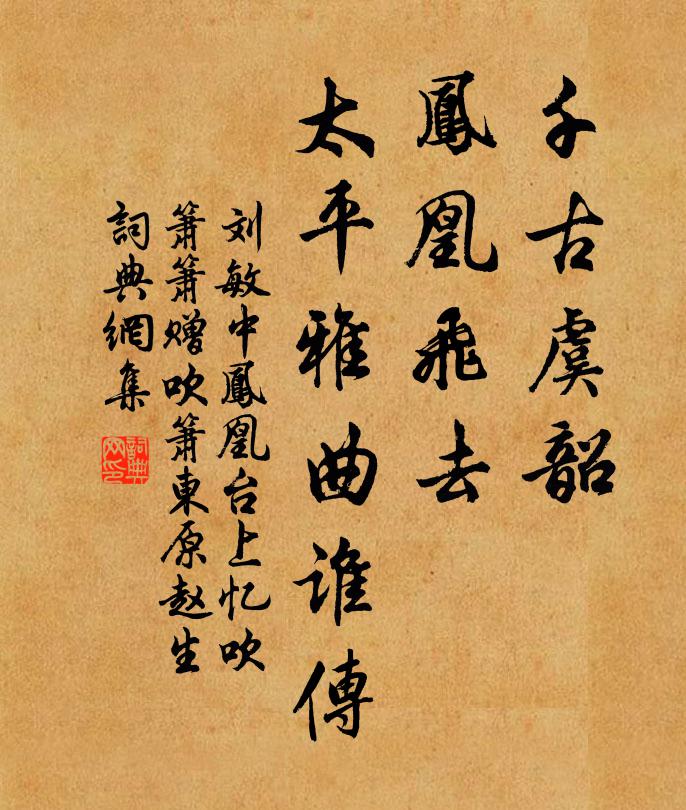 千古虞韶
鳳凰飛去
太平雅曲谁傳
刘敏中鳳凰台上忆吹
簫簫赠吹簫東原赵生
詞典網集
詞典网印